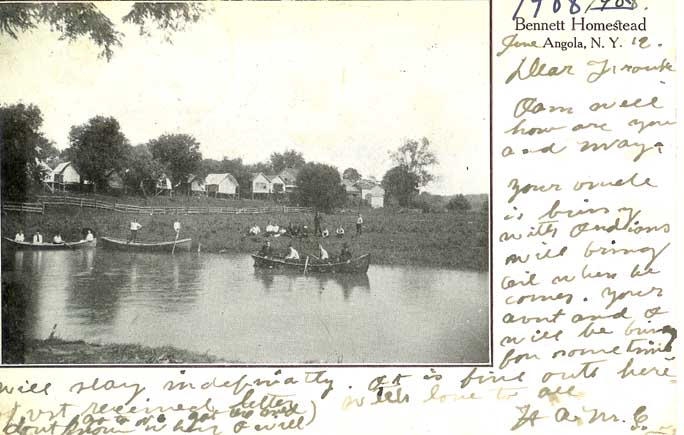 1908 1908.
Bennett Homestead
June Angola, N. Y. 12.
Dear Frank
I am well
how are you
and May?
Your uncle
is busy
with
will bring
it when he
comes. Your
aunt and I
will be busy
for sometime
will stay indefinatly. It is fine outs here
Just received letter with love to all
dont know when I will)